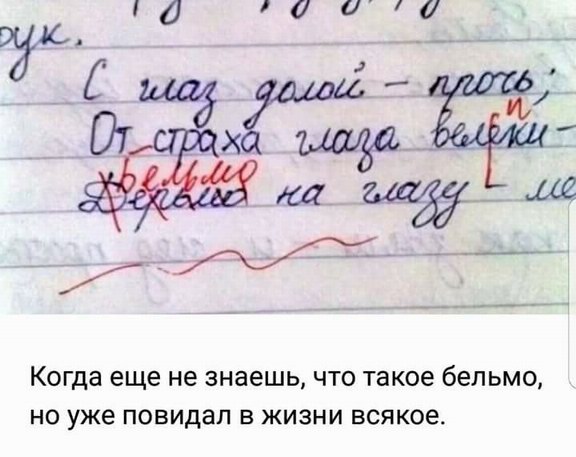 рук.
С глаз долой – прочь;
и
От страха глаза велеки –
бельмо
Дерьмо на глазу – ме
Когда еще не знаешь, что такое бельмо,
но уже повидал в жизни всякое.